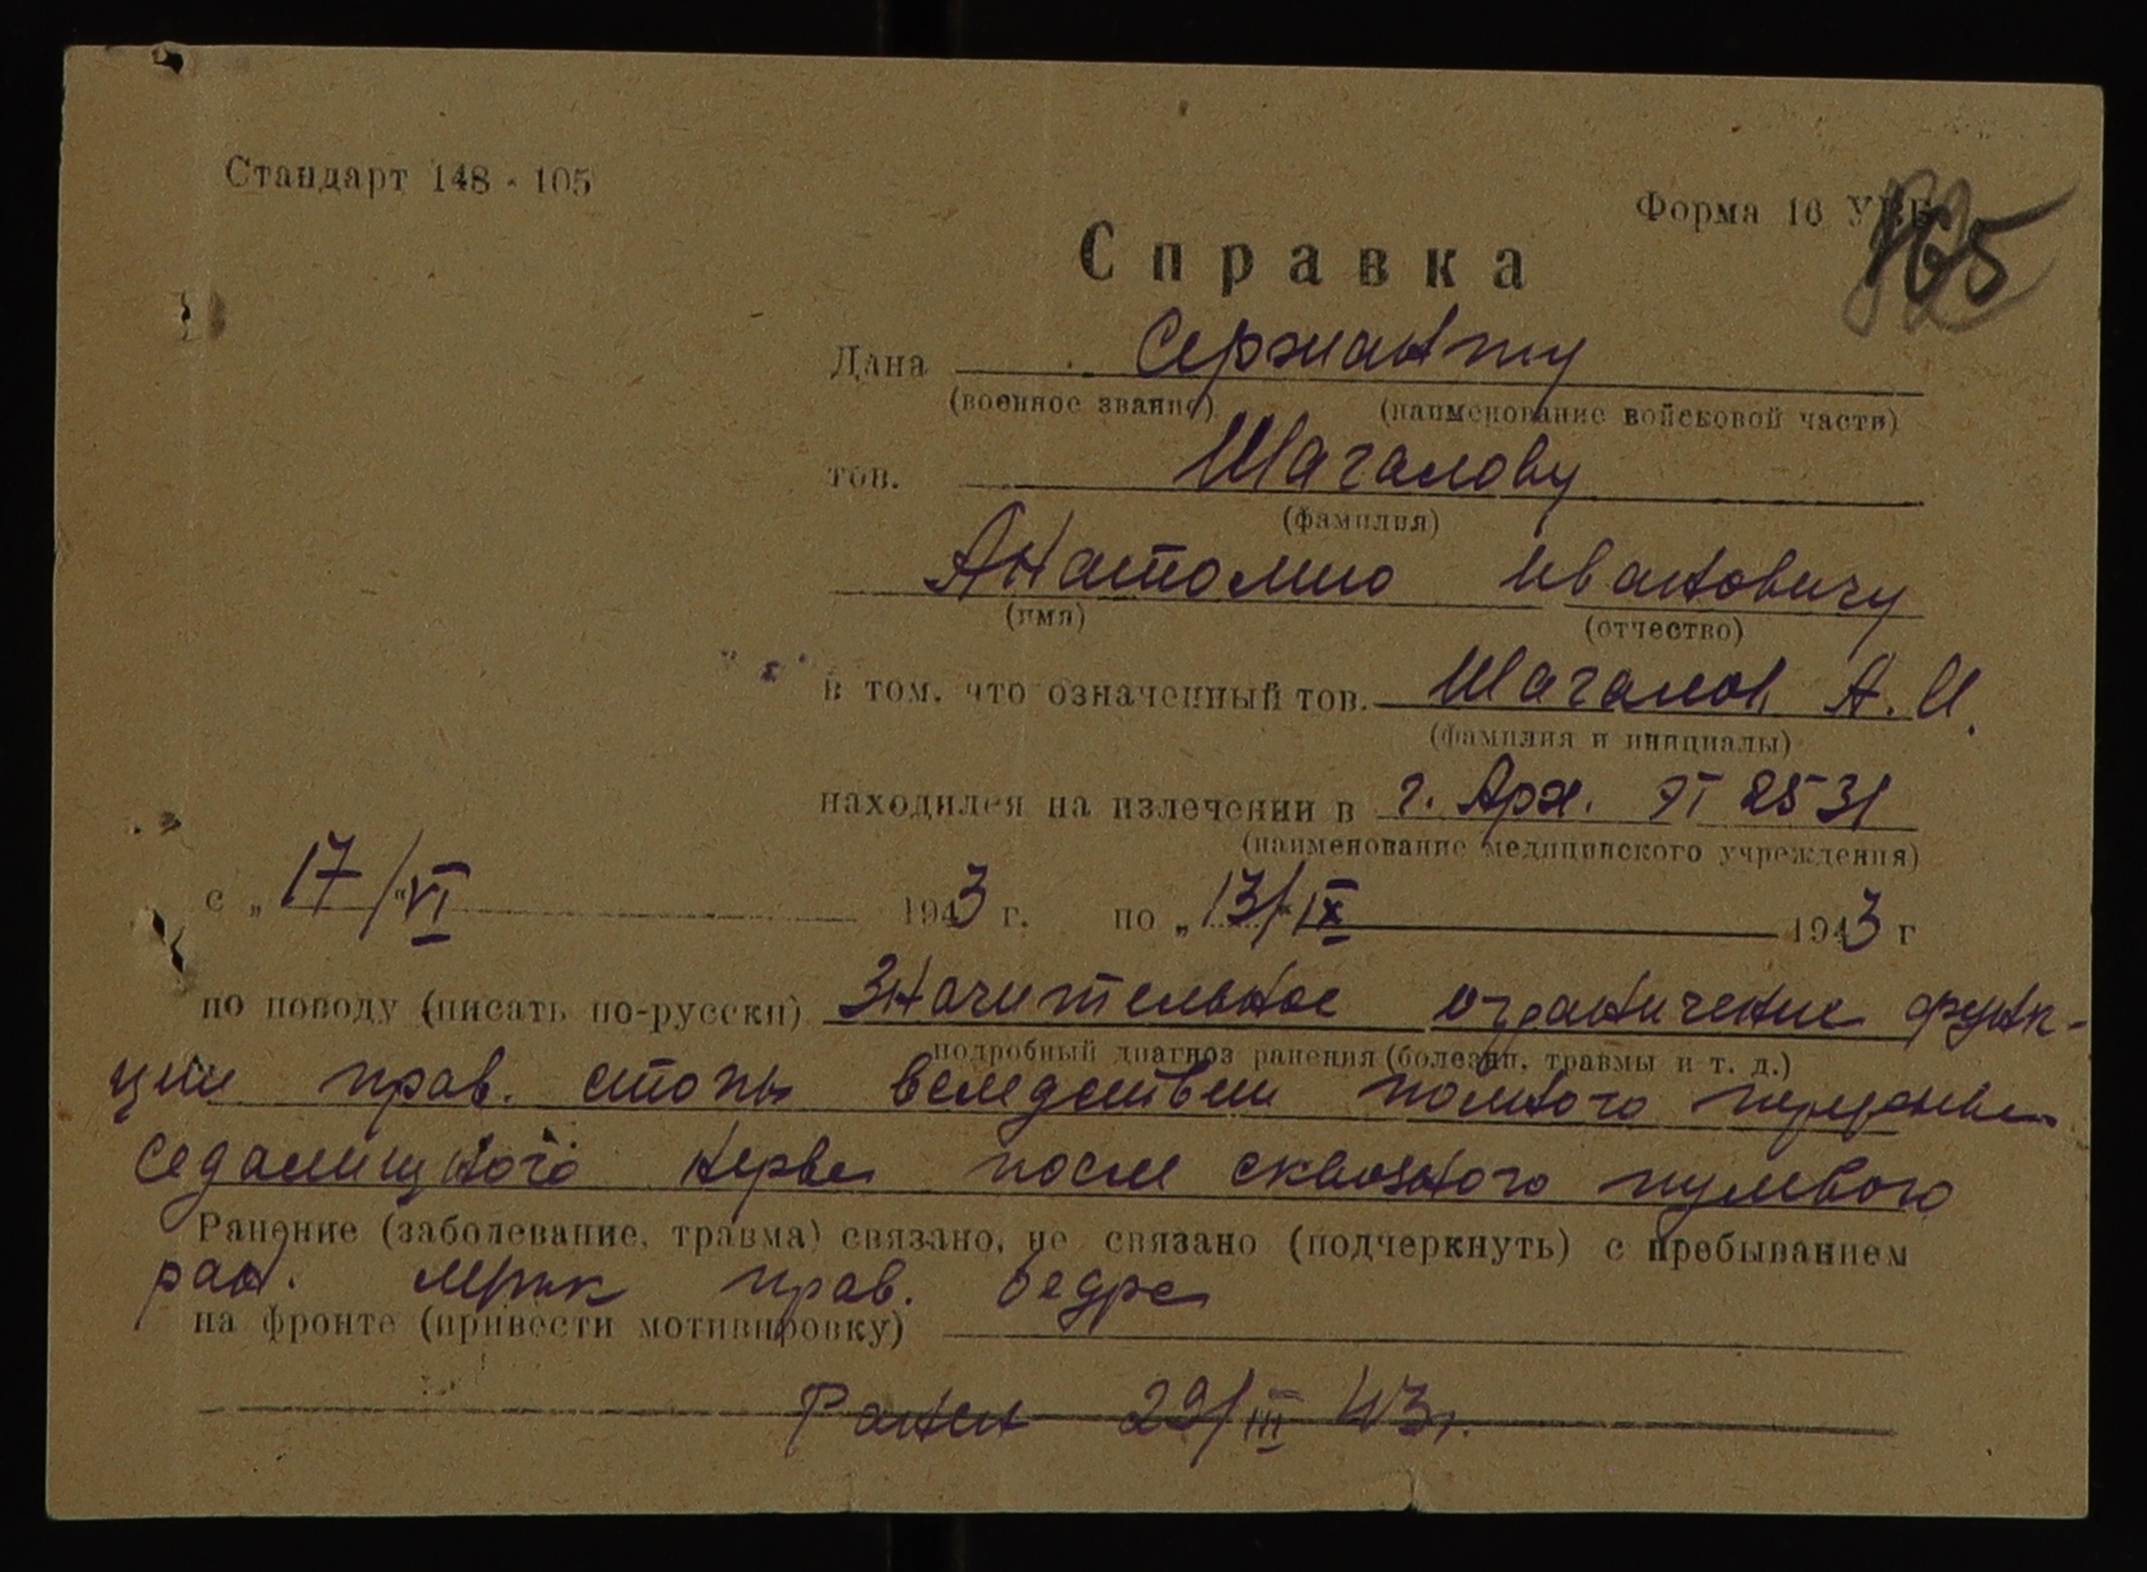 Стандарт 148 - 105
Форма 16
165
Справка
Дана Сержанту
(военное звание) (наименование войсковой части)
тов. Шагалову
(фамилия)
Анатолию Ивановичу
(имя) (отчество)
в том, что означенный тов. Шагалов А. И.
(фамилия и инициалы)
находился на излечении в г. Арх. ЭГ 2531
(наименование медицинского учреждения)
с „17/“VI 1943 г. по „13/“IX 1943 г
по поводу (писать по-русски) Значительное ограничение функ-
подробный диагноз ранения (болезни, травмы и т. д.)
ции прав. стопы вследствии полного
седалищного нерва после сквозного пулевого
Ранение (заболевание, травма) связано, не связано (подчеркнуть) с пребыванием
ран. мягк прав. бедра
на фронте (привести мотивировку)
Ранен 29/III 43г.